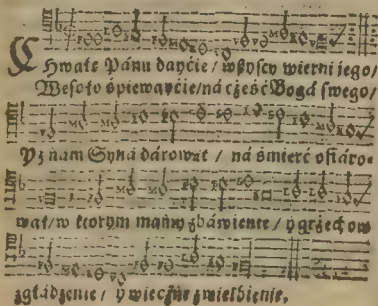 Chwałę Pánu dayćie / wszyscy wierni jego /
Wesoło śpiewayćie / ná cześć Bogá swego /
Yż nam Syná dárował / ná śmierć ofiáro-
wał / w ktorym mamy zbáwienie / y grzechow
zgłádzenie / y wieczne zwielbienie.